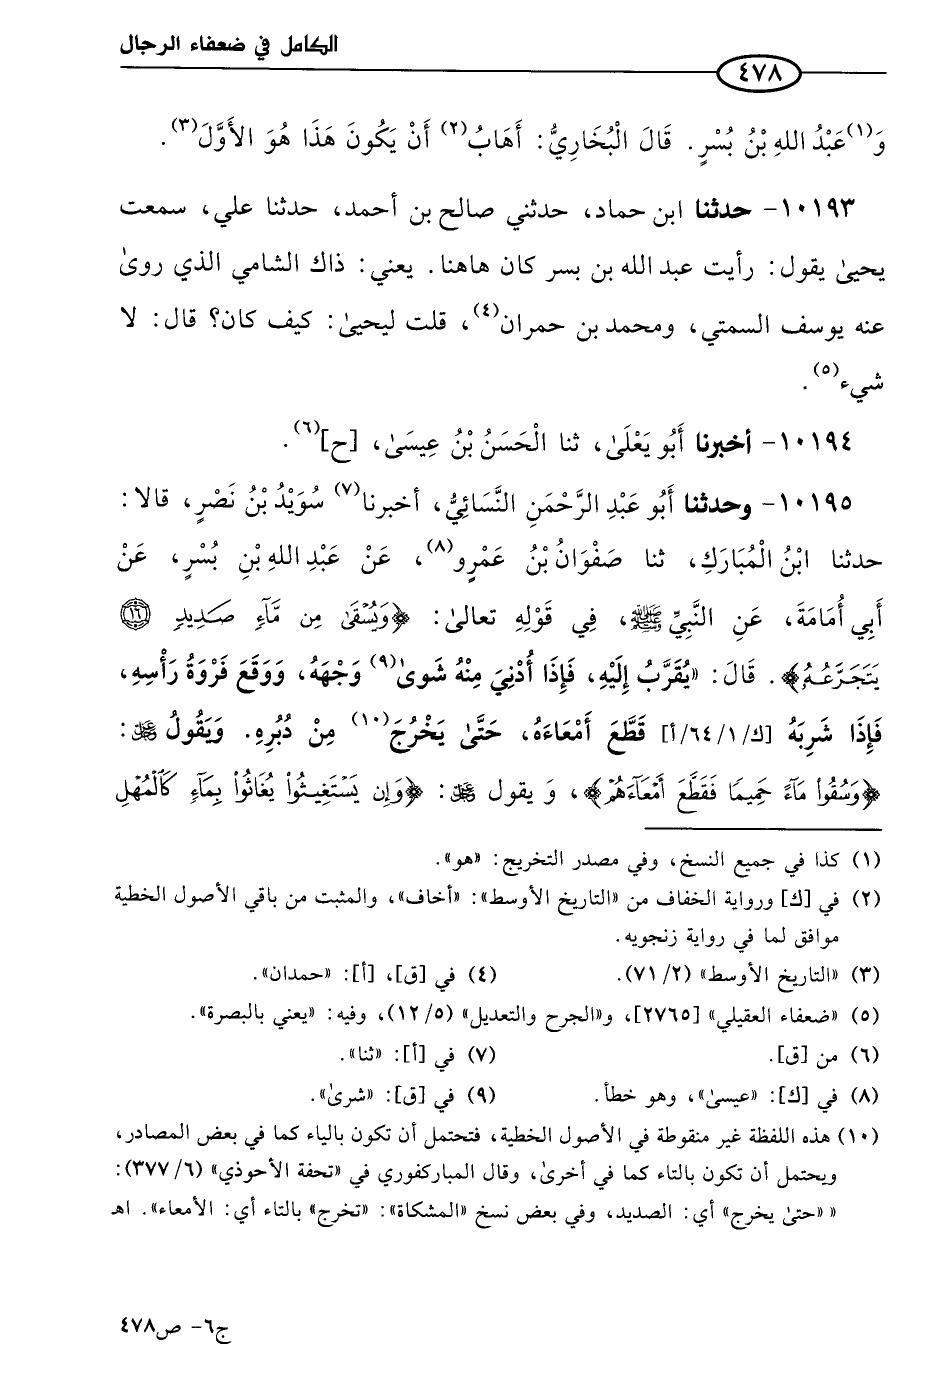 الكامل في ضعفاء الرجال
٤٧٨
وَ(١)عَبْدُ اللهِ بْنُ بُسْرٍ. قَالَ الْبُخَارِيُّ: أَهَابُ(٢) أَنْ يَكُونَ هَذَا هُوَ الأَوَّلَ(٣).
١٠١٩٣- حدثنا ابن حماد، حدثني صالح بن أحمد، حدثنا علي، سمعت
يحيىٰ يقول: رأيت عبد الله بن بسر كان هاهنا. يعني: ذاك الشامي الذي روىٰ
عنه يوسف السمتي، ومحمد بن حمران(٤)، قلت ليحيىٰ: كيف كان؟ قال: لا
شيء(٥).
١٠١٩٤- أخبرنا أَبُو يَعْلَىٰ، ثنا الْحَسَنُ بْنُ عِيسَىٰ، [ح](٦).
١٠١٩٥- وحدثنا أَبُو عَبْدِ الرَّحْمَنِ النَّسَائِيُّ، أخبرنا(٧) سُوَيْدُ بْنُ نَصْرٍ، قالا:
حدثنا ابْنُ الْمُبَارَكِ، ثنا صَفْوَانُ بْنُ عَمْرٍو(٨)، عَنْ عَبْدِ اللهِ بْنِ بُسْرٍ، عَنْ
أَبِي أُمَامَةَ، عَنِ النَّبِيِّ ﷺ، فِي قَوْلِهِ تعالىٰ: ﴿وَيُسْقَىٰ مِن مَّآءٖ صَدِيدٖ ١٦
يَتَجَرَّعُهُۥ﴾. قَالَ: «يُقَرَّبُ إِلَيْهِ، فَإِذَا أُدْنِيَ مِنْهُ شَوىٰ(٩) وَجْهَهُ، وَوَقَعَ فَرْوَةُ رَأْسِهِ،
فَإِذَا شَرِبَهُ [ك/٦٤/١/أ] قَطَّعَ أَمْعَاءَهُ، حَتَّىٰ يَخْرُجَ(١٠) مِنْ دُبُرِهِ. وَيَقُولُ ﷻ:
﴿وَسُقُوا۟ مَآءً حَمِيمٗا فَقَطَّعَ أَمْعَآءَهُمْ﴾، وَ يقول ﷻ: ﴿وَإِن يَسْتَغِيثُوا۟ يُغَاثُوا۟ بِمَآءٖ كَٱلْمُهْلِ
(١) كذا في جميع النسخ، وفي مصدر التخريج: «هو».
(٢) في [ك] ورواية الخفاف من «التاريخ الأوسط»: «أخاف»، والمثبت من باقي الأصول الخطية
موافق لما في رواية زنجويه.
(٣) «التاريخ الأوسط» (٢/ ٧١). (٤) في [ق]، [أ]: «حمدان».
(٥) «ضعفاء العقيلي» [٢٧٦٥]، و«الجرح والتعديل» (٥/ ١٢)، وفيه: «يعني بالبصرة».
(٦) من [ق]. (٧) في [أ]: «ثنا».
(٨) في [ك]: «عيسىٰ»، وهو خطأ. (٩) في [ق]: «شرىٰ».
(١٠) هذه اللفظة غير منقوطة في الأصول الخطية، فتحتمل أن تكون بالياء كما في بعض المصادر،
ويحتمل أن تكون بالتاء كما في أخرىٰ، وقال المباركفوري في «تحفة الأحوذي» (٦/ ٣٧٧):
« «حتىٰ يخرج» أي: الصديد، وفي بعض نسخ «المشكاة»: «تخرج» بالتاء أي: الأمعاء». اهـ
ج٦- ص٤٧٨